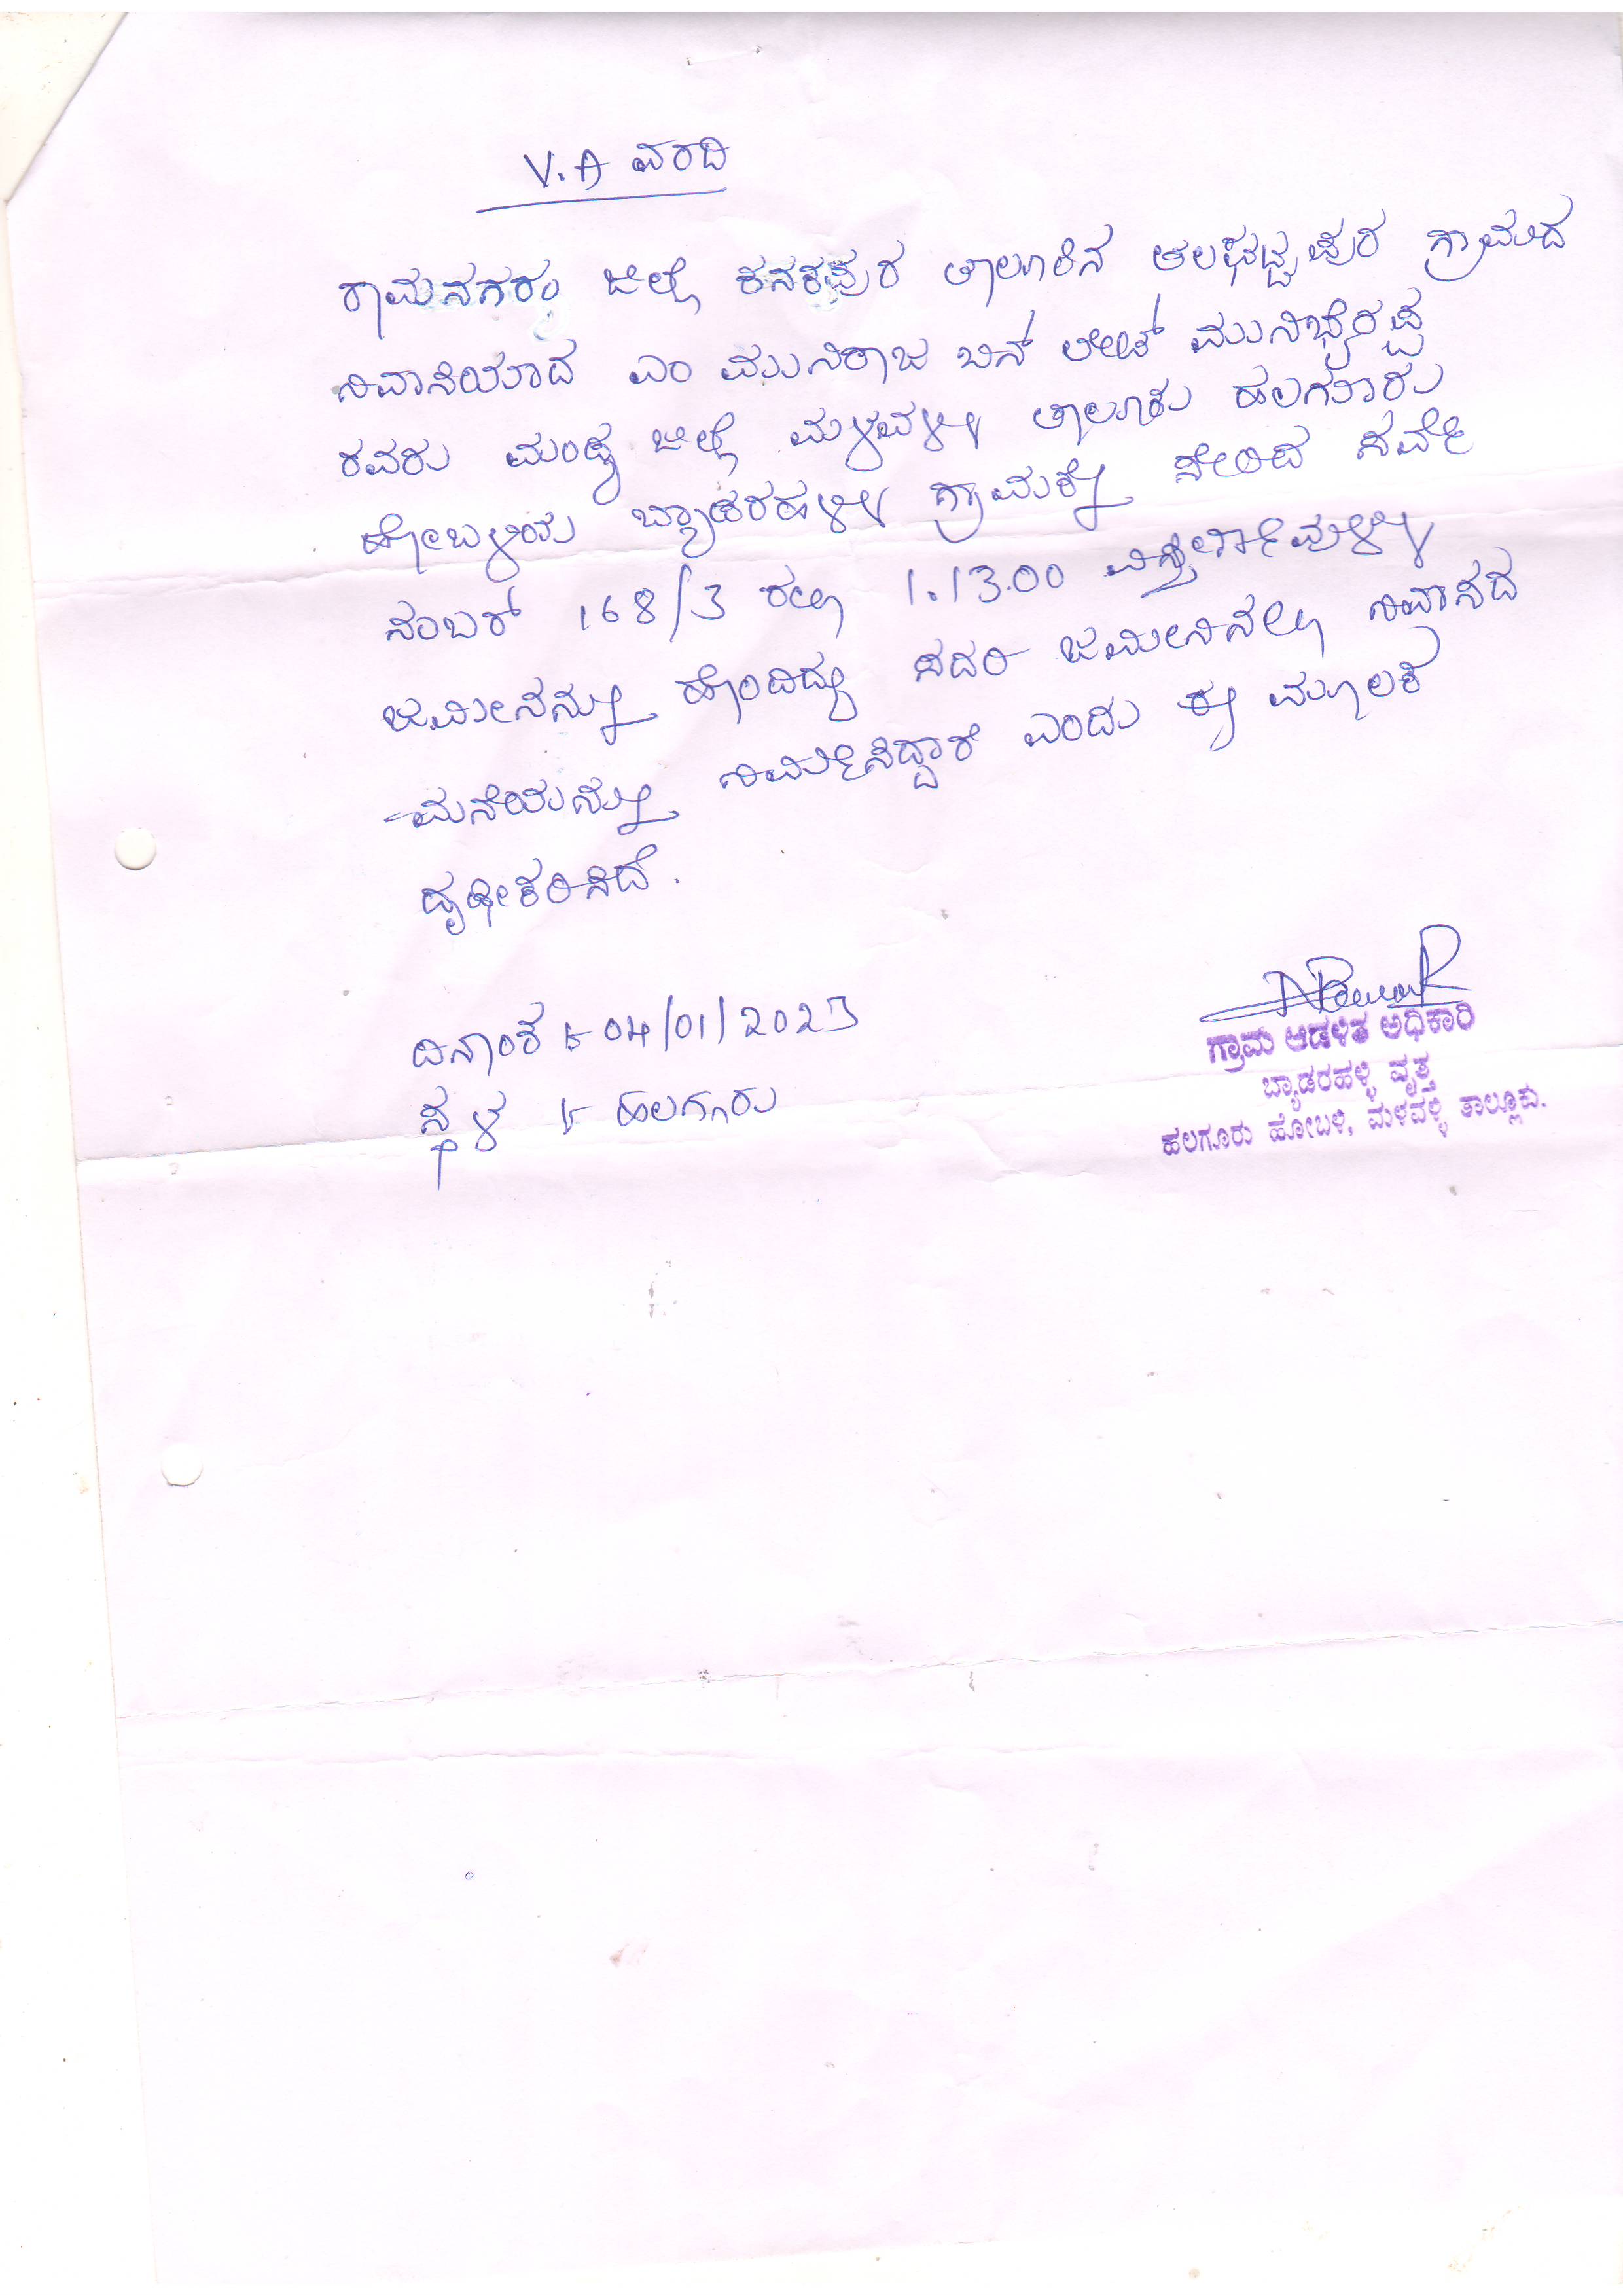 V.A ವರದಿ
ರಾಮನಗರಂ ಜಿಲ್ಲೆ ಕನಕಪುರ ತಾಲೂಕಿನ ಗ್ರಾಮದ
ನಿವಾಸಿಯಾದ ಎಂ ಮುನಿರಾಜ ಬಿನ್ ಲೇಟ್ ಮುನಿಭೈರಪ್ಪ
ರವರು ಮಂಡ್ಯ ಜಿಲ್ಲೆ ಮಳವಳ್ಳಿ ತಾಲೂಕು ಹಲಗೂರು
ಹೋಬಳಿಯ ಬ್ಯಾಡರಹಳ್ಳಿ ಗ್ರಾಮಕ್ಕೆ ಸೇರಿದ ಸರ್ವೇ
ನಂಬರ್ 168/3 ರಲ್ಲಿ 1.13.00 ವಿಸ್ತೀರ್ಣವುಳ್ಳ
ಜಮೀನನ್ನು ಹೊಂದಿದ್ದು ಸದರಿ ಜಮೀನಿನಲ್ಲಿ ನಿವಾಸದ
ಮನೆಯನ್ನು ನಿರ್ಮಿಸಿದ್ದಾರೆ ಎಂದು ಈ ಮೂಲಕ
ದೃಢೀಕರಿಸಿದೆ.
ದಿನಾಂಕ :- 04/01/2023
ಸ್ಥಳ :- ಹಲಗೂರು
ಗ್ರಾಮ ಆಡಳಿತ ಅಧಿಕಾರಿ
ಬ್ಯಾಡರಹಳ್ಳಿ ವೃತ್ತ
ಹಲಗೂರು ಹೋಬಳಿ, ಮಳವಳ್ಳಿ ತಾಲ್ಲೂಕು.